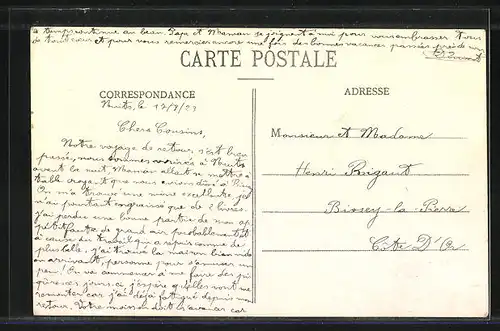 le temps continue au beau. Papa et Maman se joignent à moi pour vous embrasser tous
de tout cœur et pour vous remercier encore une fois des bonnes vacances passées près de vous
CARTE POSTALE
CORRESPONDANCE
ADRESSE
Nuits, le 17/9/23
Chers Cousins,
Notre voyage de retour s'est bien
passé, nous sommes arrivés à Nuits
avant la nuit, Maman allait se mettre à
table croyant que nous avions dîné à
On m'a trouvé une mine excellente, je
n'ai pourtant engraissé que de 2 livres.
J'ai perdu une bonne partie de mon ap-
pétit faute de grand air probablement et
à cause du travail qui a repris comme de
plus belle. J'ai trouvé la maison bien vide
en arrivant, personne pour s'amuser un
peu! On va commencer à me faire des pi-
qûres ces jours-ci, j'espère qu'elles vont me
remonter car j'ai déjà fatigué depuis mon
retour. Votre moisson doit s'avancer car
Monsieur et Madame
Henri Rigaut
Bissey-la-Pierre
Côte D'Or